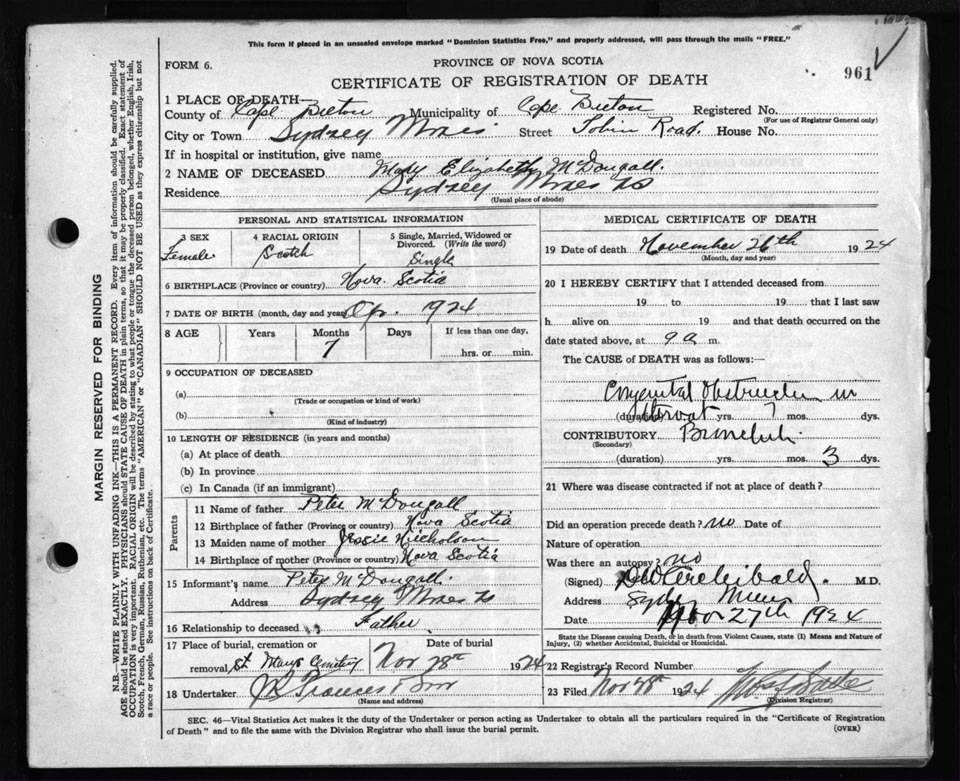 This form if placed in an unsealed envelope marked "Dominion Statistics Free," and properly addressed, will pass through the mails "FREE."
FORM 6.
PROVINCE OF NOVA SCOTIA
961
CERTIFICATE OF REGISTRATION OF DEATH
1 PLACE OF DEATH—
County of Cape Breton Municipality of Cape Breton Registered No.
(For use of Registrar General only)
City or Town Sydney Mines Street Tobin Road. House No.
If in hospital or institution, give name
2 NAME OF DECEASED Mary Elizabeth McDougall.
Residence Sydney Mines NS
(Usual place of abode)
PERSONAL AND STATISTICAL INFORMATION
3 SEX Female
4 RACIAL ORIGIN Scotch
5 Single, Married, Widowed or Divorced. (Write the word) Single
6 BIRTHPLACE (Province or country) Nova Scotia
7 DATE OF BIRTH (month, day and year) Ap. 1924
8 AGE Years Months Days If less than one day,
7 hrs. or min.
9 OCCUPATION OF DECEASED
(a)
(Trade or occupation or kind of work)
(b)
(Kind of industry)
10 LENGTH OF RESIDENCE (in years and months)
(a) At place of death
(b) In province
(c) In Canada (if an immigrant)
Parents
11 Name of father Peter McDougall
12 Birthplace of father (Province or country) Nova Scotia
13 Maiden name of mother Jessie Nicholson
14 Birthplace of mother (Province or country) Nova Scotia
15 Informant's name Peter McDougall.
Address Sydney Mines NS
16 Relationship to deceased Father
17 Place of burial, cremation or removal St. Marys Cemetery
Date of burial Nov 28th 1924
18 Undertaker Frances & Son
(Name and address)
MEDICAL CERTIFICATE OF DEATH
19 Date of death November 26th 1924
(Month, day and year)
20 I HEREBY CERTIFY that I attended deceased from
19 to 19 that I last saw
h alive on 19 and that death occurred on the
date stated above, at 9 a m.
The CAUSE OF DEATH was as follows:
Congenital Obstruction in
throat
(duration) yrs. 7 mos. dys.
CONTRIBUTORY
(Secondary)
(duration) yrs. mos. 3 dys.
21 Where was disease contracted if not at place of death?
Did an operation precede death? no Date of
Nature of operation
Was there an autopsy? no
(Signed) Archibald. M.D.
Address Sydney Mines
Date Nov 27th 1924
State the Disease causing Death, or in death from Violent Causes, state (1) Means and Nature of Injury, (2) whether Accidental, Suicidal or Homicidal.
22 Registrar's Record Number
23 Filed Nov 28th 1924
(Division Registrar)
SEC. 46—Vital Statistics Act makes it the duty of the Undertaker or person acting as Undertaker to obtain all the particulars required in the "Certificate of Registration
of Death" and to file the same with the Division Registrar who shall issue the burial permit.
(OVER)
MARGIN RESERVED FOR BINDING
N.B.—WRITE PLAINLY WITH UNFADING INK—THIS IS A PERMANENT RECORD. Every item of information should be carefully supplied.
AGE should be stated EXACTLY. PHYSICIANS should STATE CAUSE OF DEATH in plain terms, so that it may be properly classified. Exact statement of
OCCUPATION is very important. RACIAL ORIGIN will be described by stating to what people or tongue the deceased person belonged, whether English, Irish,
Scotch, French, German, Russian, Ruthenian, etc. The terms "AMERICAN" or "CANADIAN" SHOULD NOT BE USED as they express citizenship but not
a race or people. See instructions on back of Certificate.